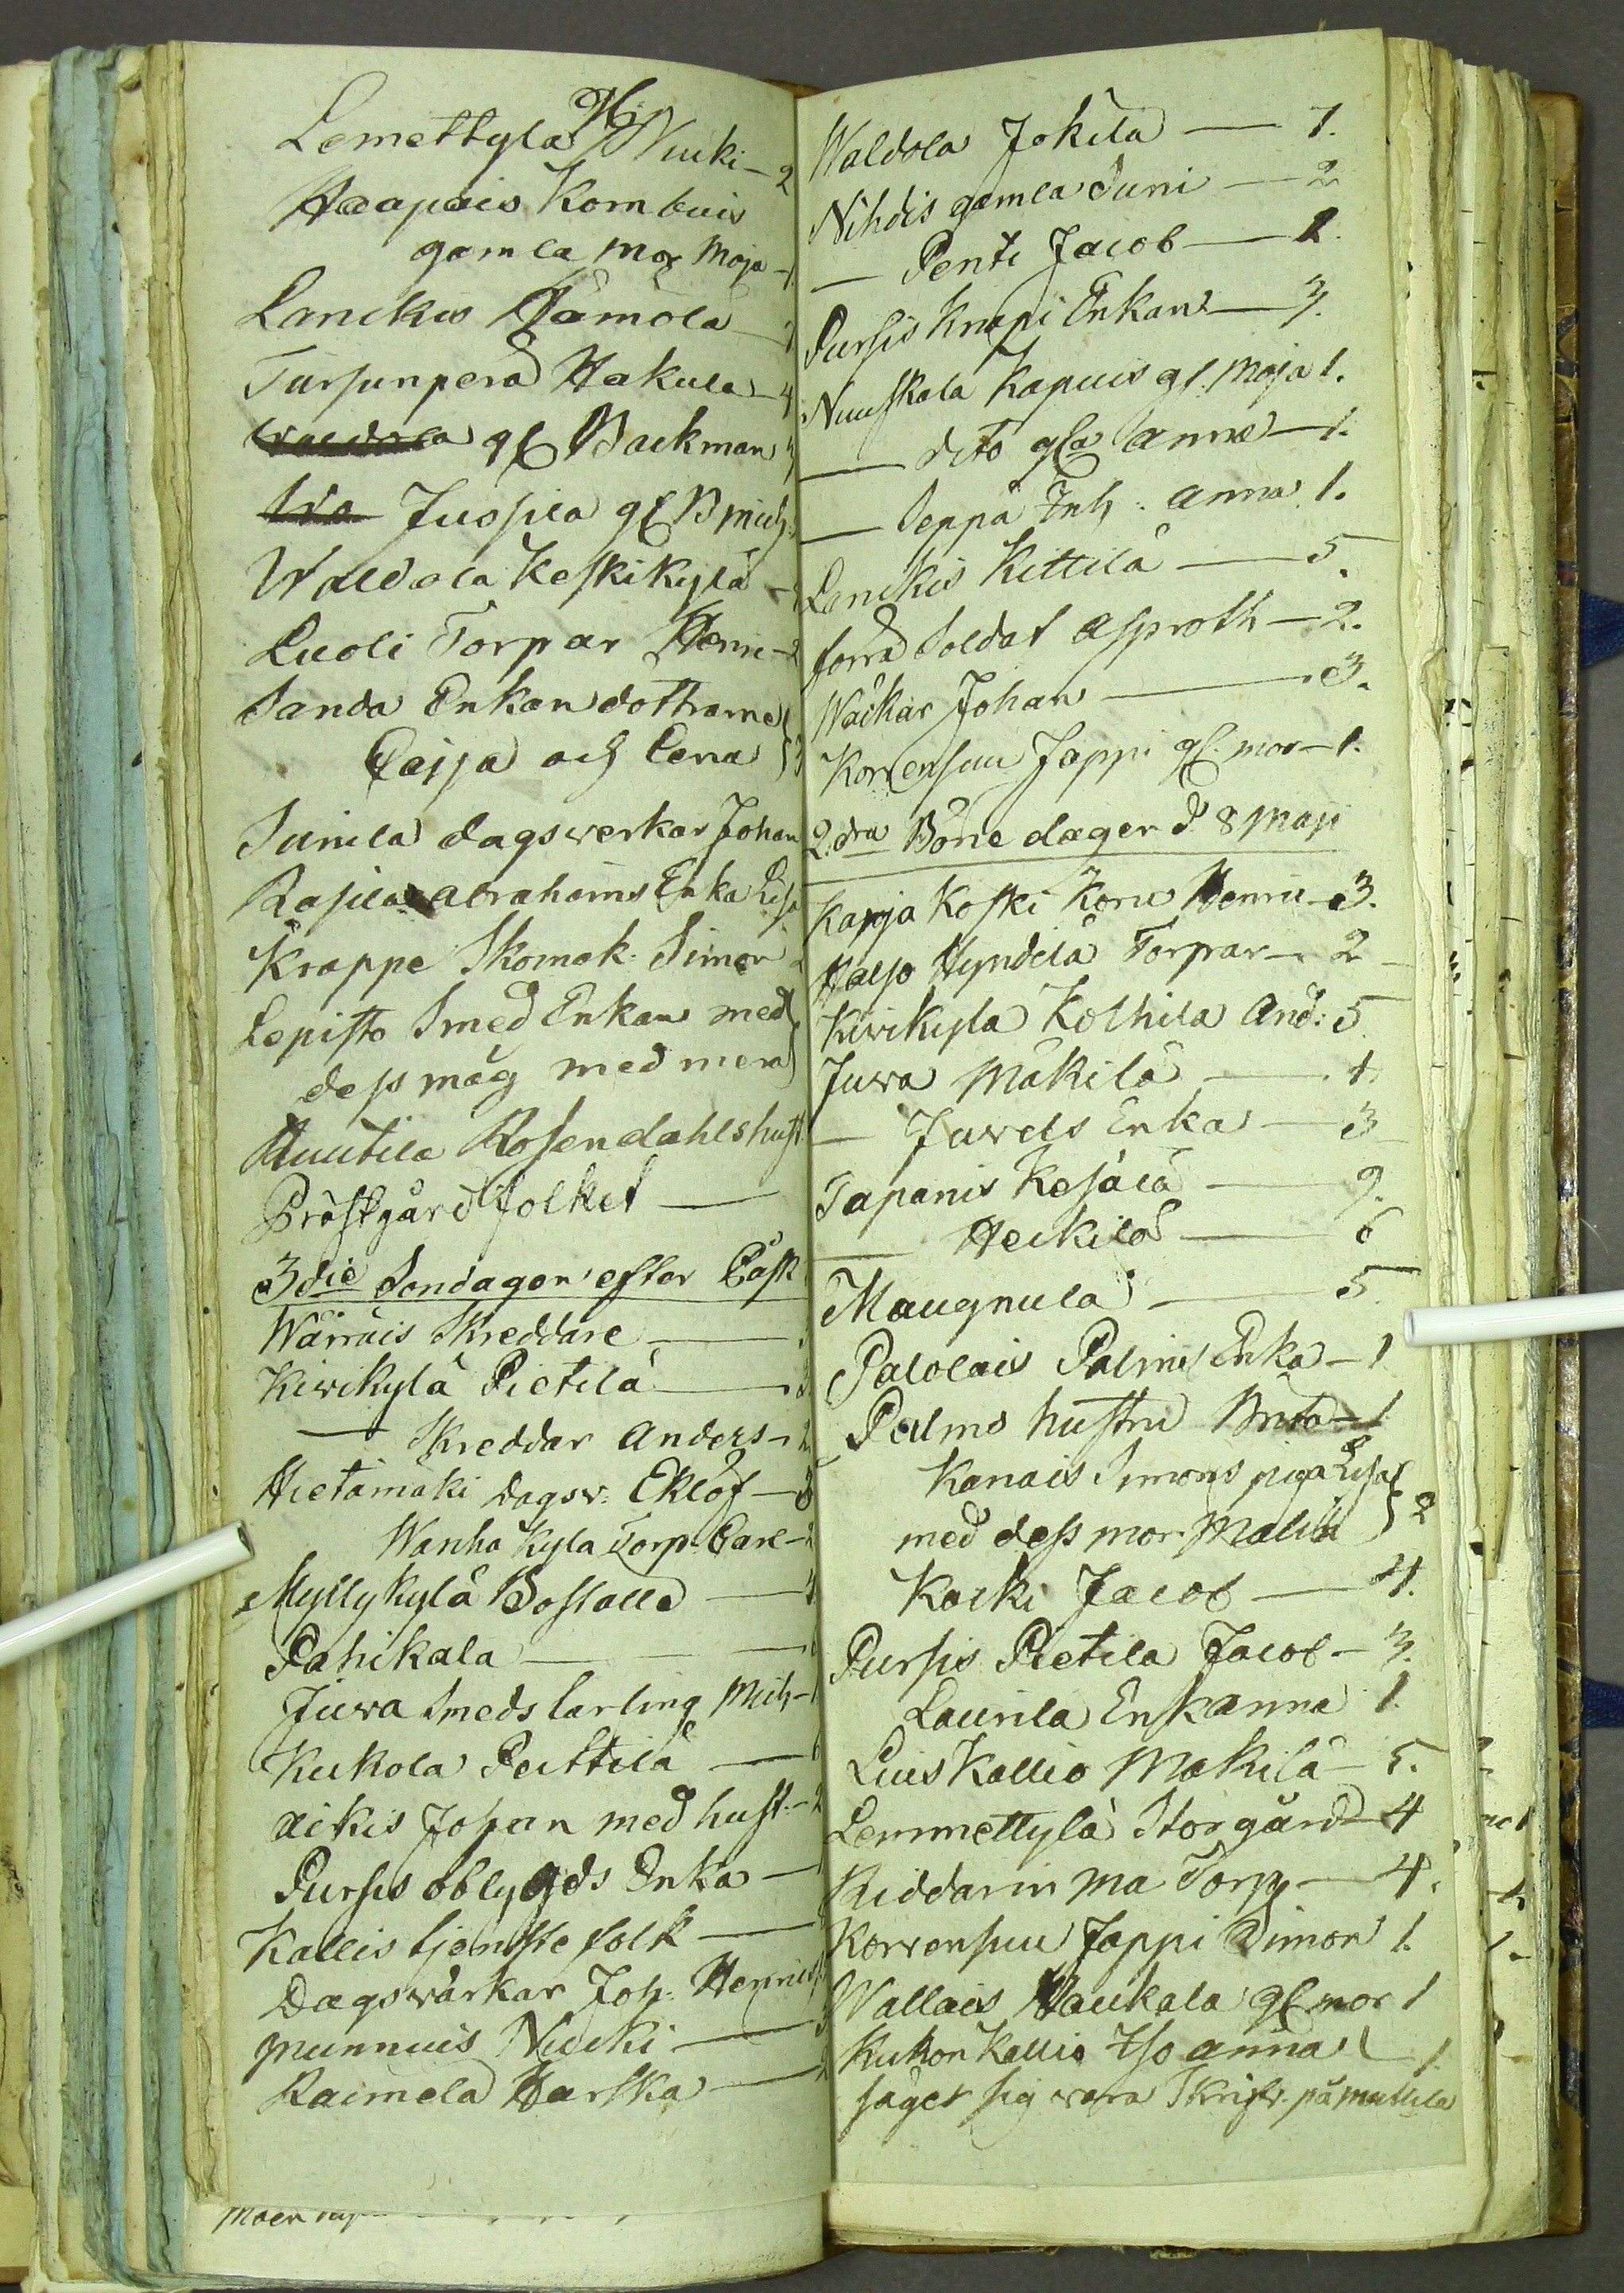 Lemettyla Hj Nucki - 2
Haapais Kombuis
gamla mor Maja - 1.
Lanckis Dämölä
Tursunpera Hakula - 4
Waldola gl Backman
Juopila gl B Mich.
Waldola Keskikylä
Luoli Torpar Henri - 2
Sanda Enkan dottrarne
Caisa och Lena } 3
Junila dagswerkar Johan
Rasila abrahams Enka Lisa
Krappe Skomak. Simon
Lepisto Smed Enkan med
dess måg med mera
Huutila Rosendahls hust.
Pröstgård folket —
3die Söndagen efter Påsk
Wärräis Skreddare —
Kiwikylä Pietilä — 3
— Skreddar Anders - 2
Hietamäki dagsv. Eklöf - 3
Wanha Kyla Torp. Carl - 2
Myllykylä Bostalle — 4
Pahikala —
Juva Smeds Larling Mich - 1
Kukola Perttilä — 6
Aikis Johan med hust. - 2
Pursis oblygds Enka —
Kallis tjenste folk —
Dagsvärkar Joh. Henrics
Munnuis Nucki —
Raimela Harska —
Maen
Waldola Jokila — 7.
Nihdis gamla Juni — 2
— Penti Jacob — 2.
Pursis Knapi Enkan — 3.
Nuuskala Kapuis gl. Moja 1.
— dito gla Anna — 1.
— Seppä Inh: Anna 1.
Lanckis Kittilä — 5.
förra Soldat Asproth — 2.
Wäckar Johan — 3.
Korrensuu Jappi gl. mor — 1.
2dra Böne dagen d. 8 Maji
Karja Koski Koru Henric - 3.
Haljo Hyndilä Torpar - 2
Kiwikyla Kolhila And: 5
Juva Mäkilä — 4
— Juvels Enka — 3
Tapanis Kesälä — 9.
— Heikilä — 6
Maugnula — 5.
Palolais Palms Enka - 1
Palms hustru Brita - 1
Kanais Simons piga Lisa
med dess mor Malin } 2
Kocki Jacob — 4.
Pursis Pietila Jacob - 3.
Laurila Enk anna 1.
Luiskallio Makilä - 5.
Lemmettylä Storgård - 4
Riddarin ma Torp — 4.
Korrensuu Jappi Simon 1.
Wallais Haukala gl mor 1
Kukonkallio Iso anna 1.
säger sig wara Skrifv. på Mattila